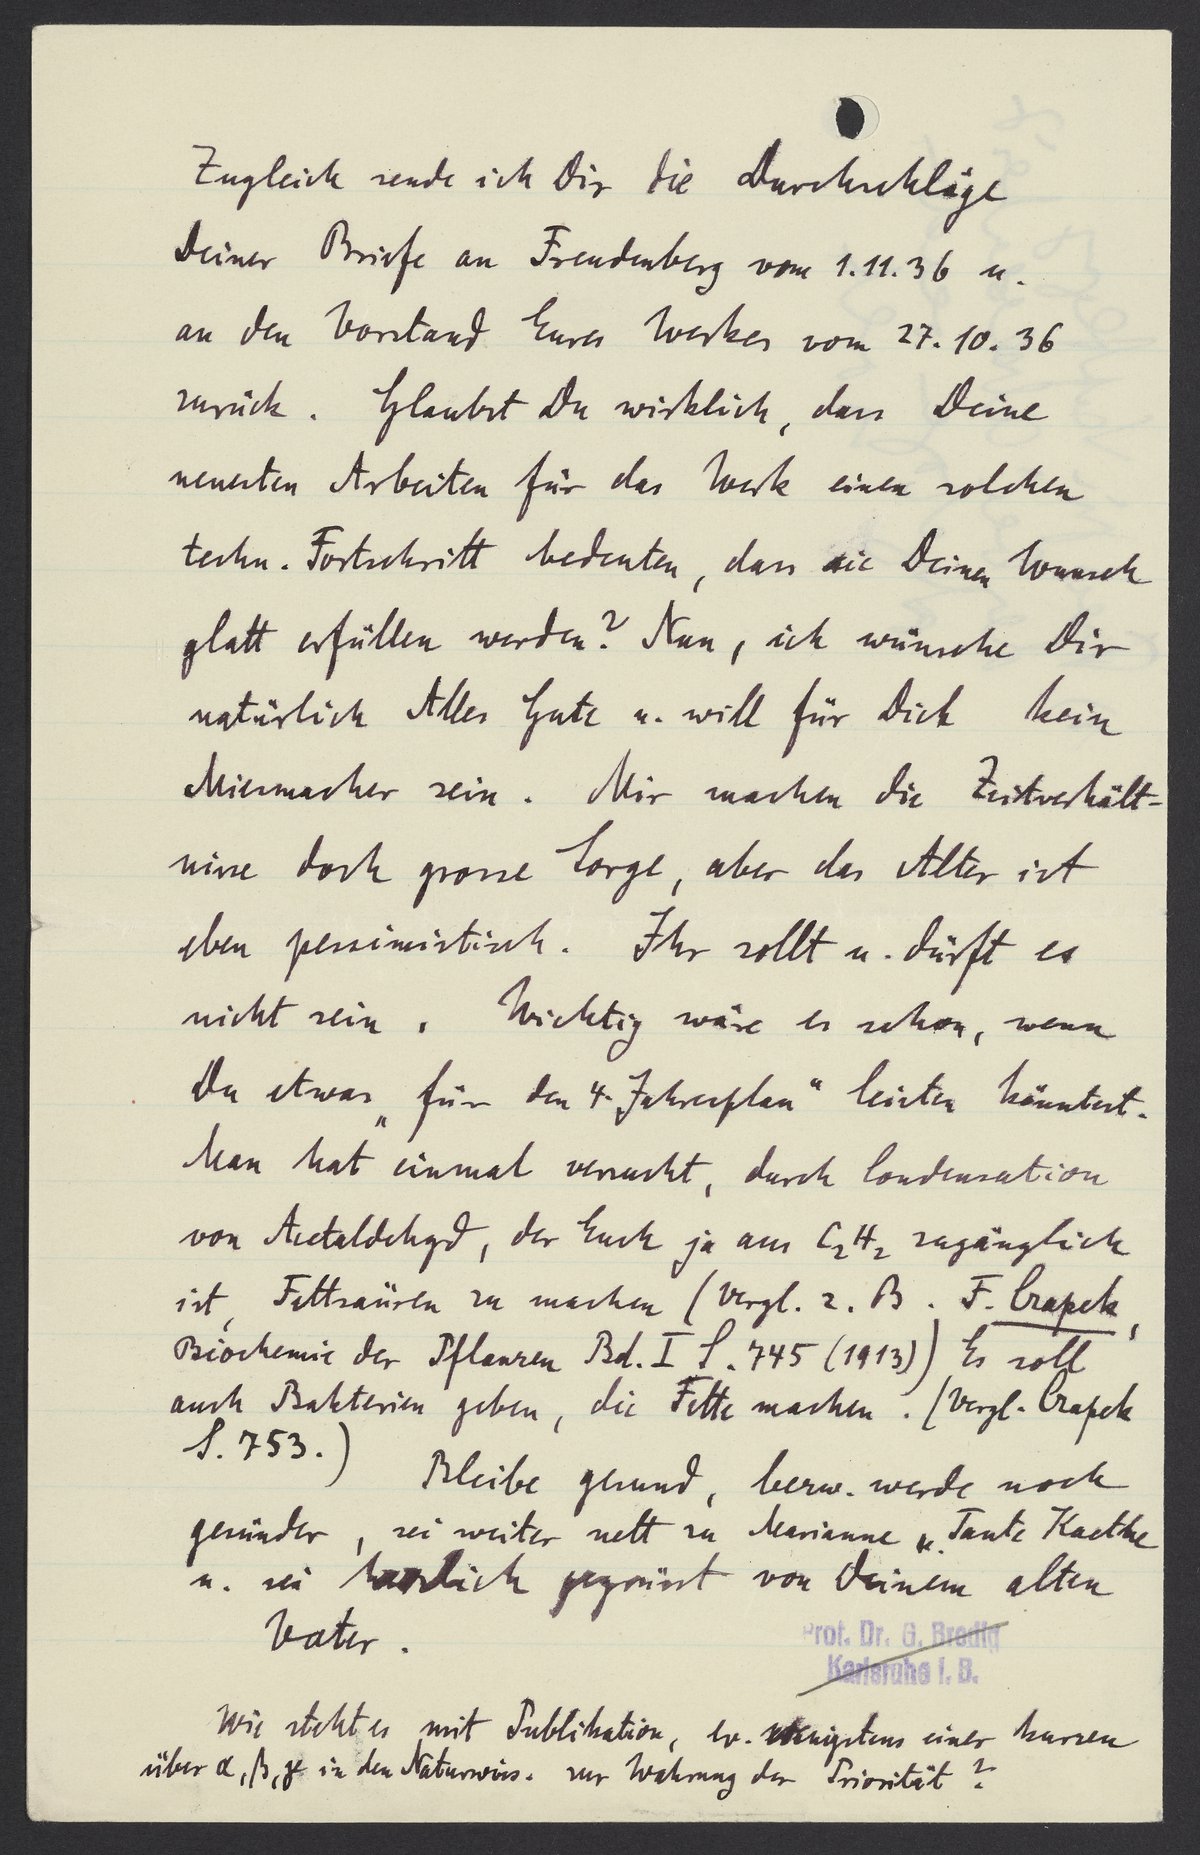 Zugleich sende ich Dir die Durchschläge
Deiner Briefe an Freudenberg vom 1.11.36 u.
an den Vorstand Eures Werkes vom 27.10.36
zurück. Glaubst Du wirklich, dass Deine
neuesten Arbeiten für das Werk einen solchen
techn. Fortschritt bedeuten, dass sie Deinen Wunsch
glatt erfüllen werden? Nun, ich wünsche Dir
natürlich Alles Gute u. will für Dich kein
Miesmacher sein. Mir machen die Zeitverhält-
nisse doch grosse Sorge, aber das Alter ist
eben pessimistisch. Ihr sollt u. dürft es
nicht sein. Wichtig wäre es schon, wenn
Du etwas „für den 4-Jahresplan“ leisten könntest.
Man hat einmal versucht, durch Condensation
von Acetaldehyd, der Euch ja aus C₂H₂ zugänglich
ist, Fettsäuren zu machen (Vergl. z. B. F. Czapek,
Biochemie der Pflanzen Bd. I S. 745 (1913)) Es soll
auch Bakterien geben, die Fette machen. (Vergl. Czapek
S. 753.)
Bleibe gesund, bezw. werde noch
gesünder, sei weiter nett zu Marianne u. Tante Kaethe
u. sei herzlich gegrüsst von Deinem alten
Vater.
Prof. Dr. G. Bredig
Karlsruhe i. B.
Wie steht es mit Publikation, ev. wenigstens einer kurzen
über α, β, γ in den Naturwiss. zur Wahrung der Priorität?